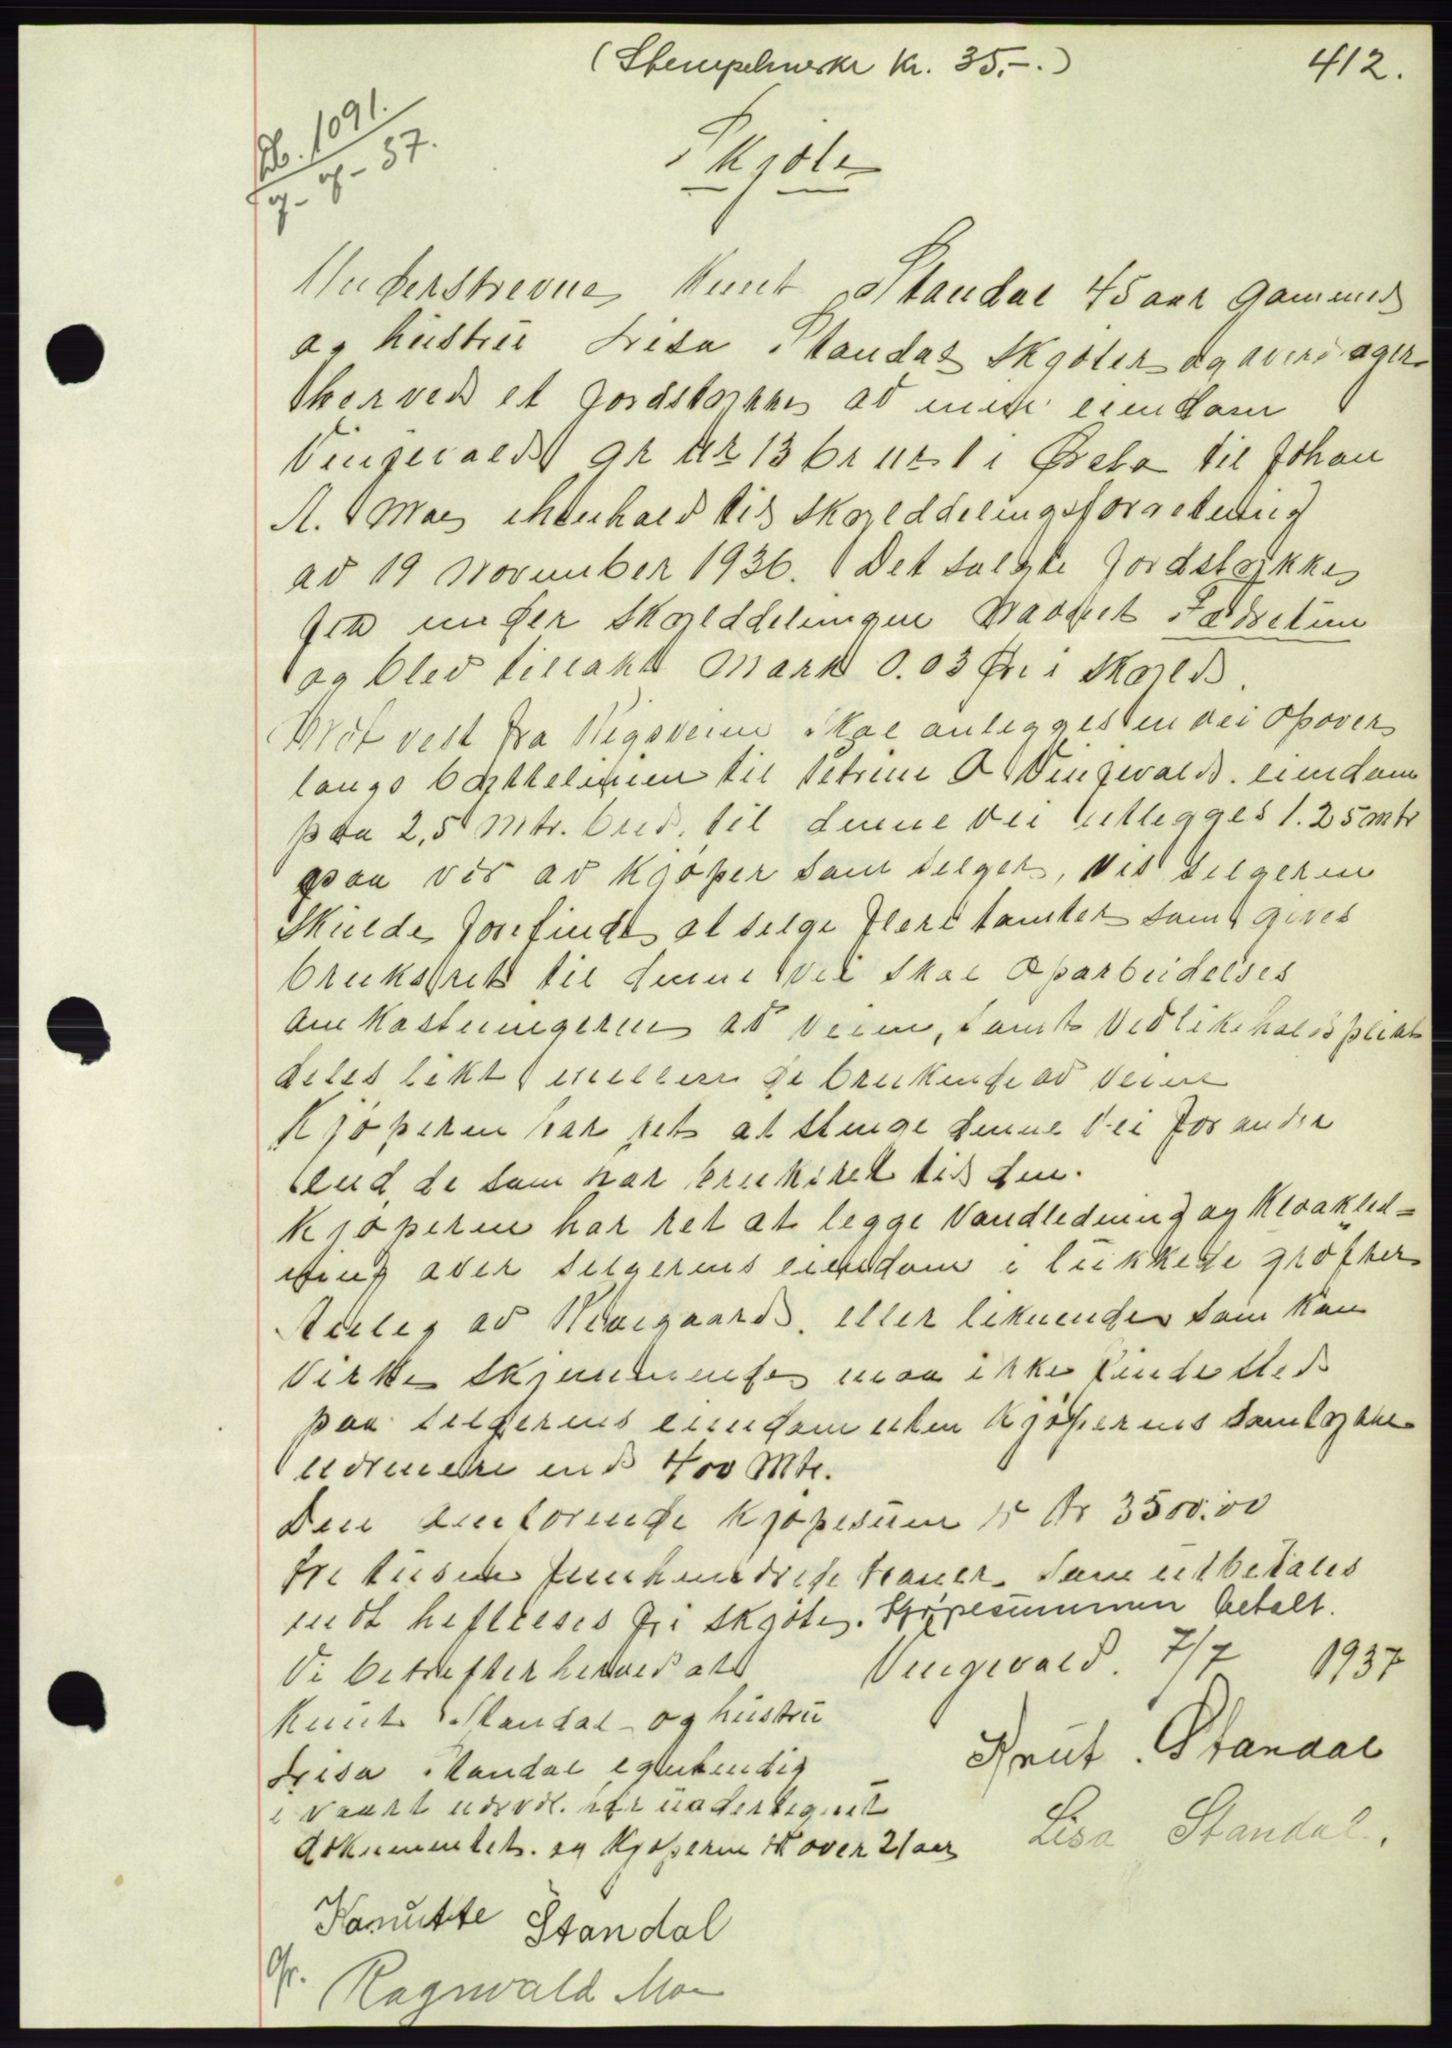 (Stempelmerke Kr. 35,-.)
412.
Db. 1091.
9-7-37.
Skjöte
Underskrevne Knut Standal 45 aar gammel
og hustru Lisa Standal skjöter og overdrager
herved et jordstykke av min eiendom
Vingevold gr nr 13 br nr 1 i Örsta til Johan
A. Moe i henhold til skylddelingsforretning
av 19 November 1936. Det solgte jordstykke
fik under skylddelingen navnet Fædretun
og blev tillakt Mark 0.03 Öre i skyld.
Mot vest fra Rigsveien skal anlegges en vei opover
langs byttelinien til Petrine O Vingevolds eiendom
paa 2,5 Mtr. bred, til denne vei utlegges 1.25 mtr
paa vær av kjöper som selger, vis selgeren
skulde forefinde at selge flere tomter som gives
bruksret til denne vei skal oparbeidelses
omkostningerne av veien, samt vedlikeholdsplikt
deles likt mellem de brukende av veien
Kjöperen har ret at stenge denne vei for andre
end de som har bruksret til den.
Kjöperen har ret at legge vandledning og kloakled=
ning over selgerens eiendom i lukkede gröfter
Anleg av Revegaard eller liknende som kan
virke skjemmende maa ikke finde sted
paa selgerens eiendom uten kjöperens samtykke
nærmere end 400 Mtr.
Den omforende kjöpesum er Kr 3500.00
tre tusen femhundrede kroner som utbetales
mot heftelses fri skjöte. Kjöpesummen betalt.
Vi bekrefter herved at
Vingevold. 7/7 1937
Knut Standal og hustru
Knut Standal
Lisa Standal egenhendig
i vaart nærvær har undertegnet
Lisa Standal.
dokumentet. og Kjöperen er over 21 aar
Kanutte Standal
Ragnvald Moe